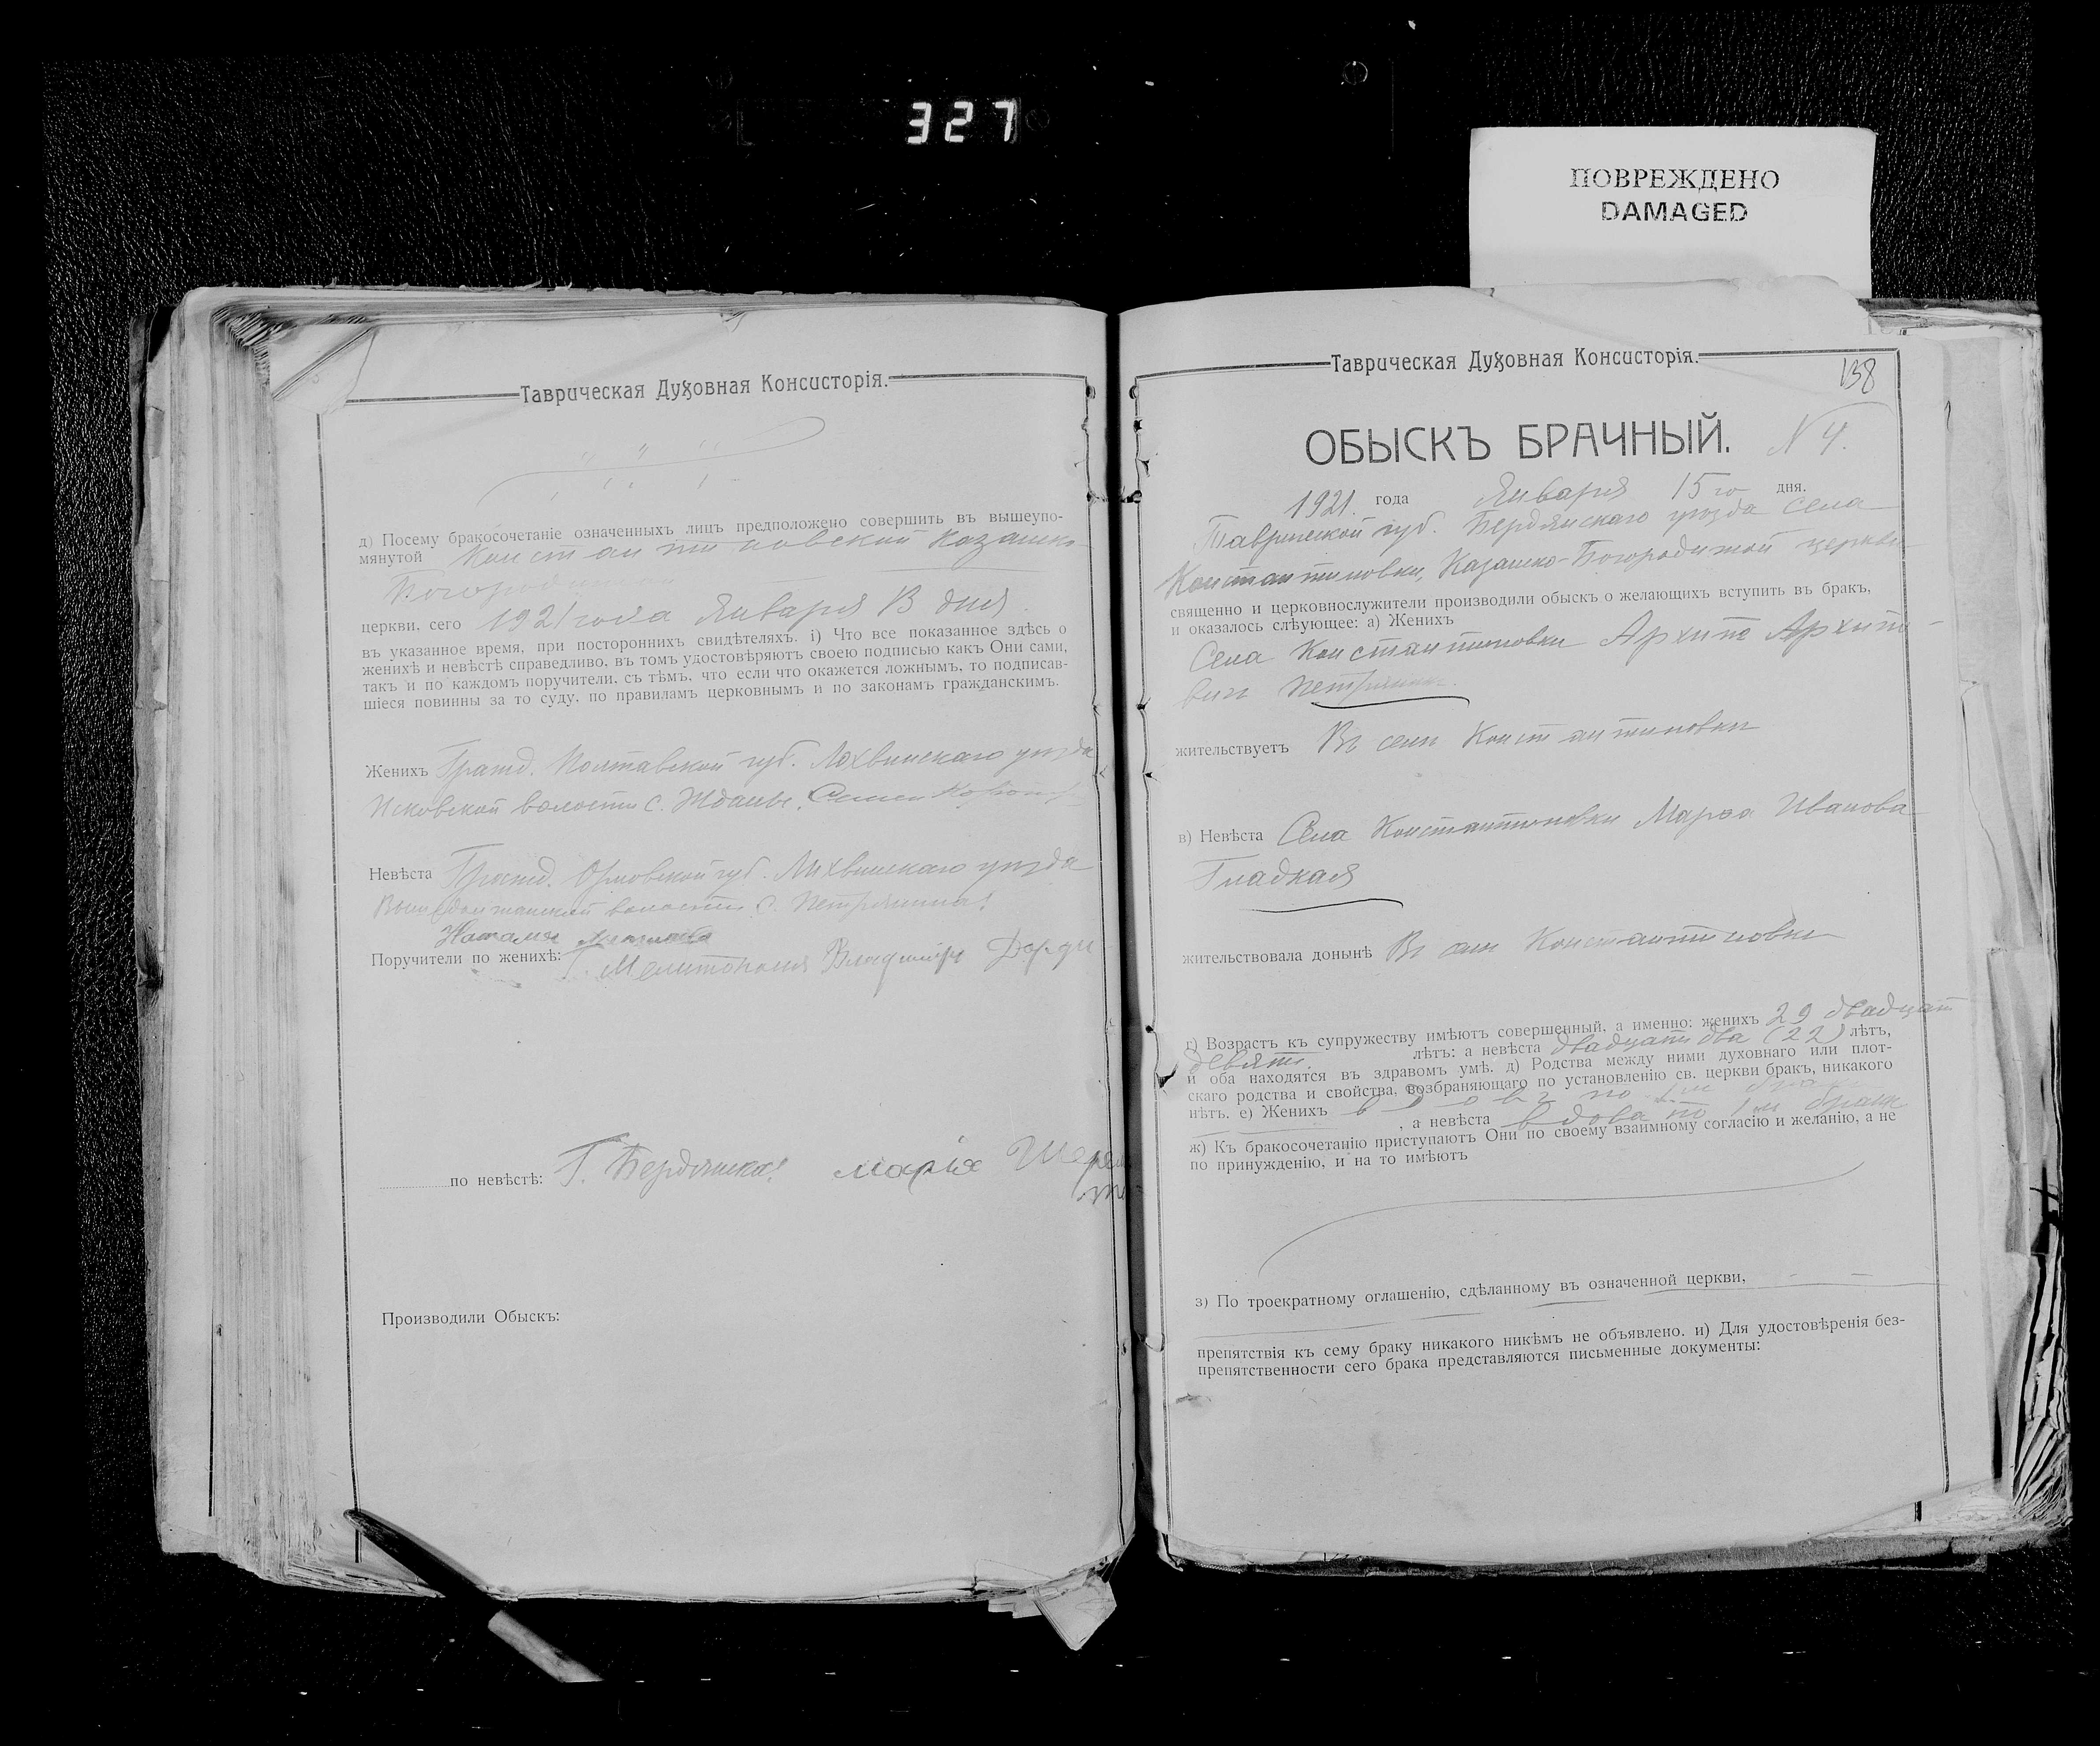 327
ПОВРЕЖДЕНО
DAMAGED
Таврическая Духовная Консисторія.
д) Посему бракосочетаніе означенныхъ лицъ предположено совершить въ вышеупо-
мянутой Константиновской Казанско-
Богородичной
церкви, сего 1921 года Января 13 дня.
въ указанное время, при постороннихъ свидѣтеляхъ. і) Что все показанное здѣсь о
женихѣ и невѣстѣ справедливо, въ томъ удостовѣряютъ своею подписью какъ Они сами,
такъ и по каждомъ поручители, съ тѣмъ, что если что окажется ложнымъ, то подписав-
шіеся повинны за то суду, по правиламъ церковнымъ и по законамъ гражданскимъ.
Женихъ Гражд. Полтавской губ. Лохвицкаго уѣзда
волости с. Ждановъ. Семен
Невѣста Гражд. Орловской губ. уѣзда
волости с.
Наталия
Поручители по женихѣ: Г. Мелитополя Владимір
по невѣстѣ: Г. Бердянска: Марія
Производили Обыскъ:
Таврическая Духовная Консисторія.
138
ОБЫСКЪ БРАЧНЫЙ. N 4.
1921. года Января 15го дня.
Таврической губ. Бердянскаго уѣзда села
Константиновки, Казанско-Богородичной церкви
священно и церковнослужители производили обыскъ о желающихъ вступить въ бракъ,
и оказалось слѣующее: а) Женихъ
Села Константиновки Архипъ Архипо-
вич
жительствуетъ Въ селѣ Константиновки
в) Невѣста Села Константиновки Марфа Иванова
Гладкая
жительствовала донынѣ Въ селѣ Константиновки
г) Возрастъ къ супружеству имѣютъ совершенный, а именно: женихъ 29 двадцать
девять. лѣтъ: а невѣста двадцать два (22) лѣтъ,
и оба находятся въ здравомъ умѣ. д) Родства между ними духовнаго или плот-
скаго родства и свойства, возбраняющаго по установленію св. церкви бракъ, никакого
нѣтъ. е) Женихъ вдовъ по 1м бракѣ
, а невѣста вдова по 1м бракѣ
ж) Къ бракосочетанію приступаютъ Они по своему взаимному согласію и желанію, а не
по принужденію, и на то имѣютъ
з) По троекратному оглашенію, сдѣланному въ означенной церкви,
препятствія къ сему браку никакого никѣмъ не объявлено. и) Для удостовѣренія без-
препятственности сего брака представляются письменные документы: